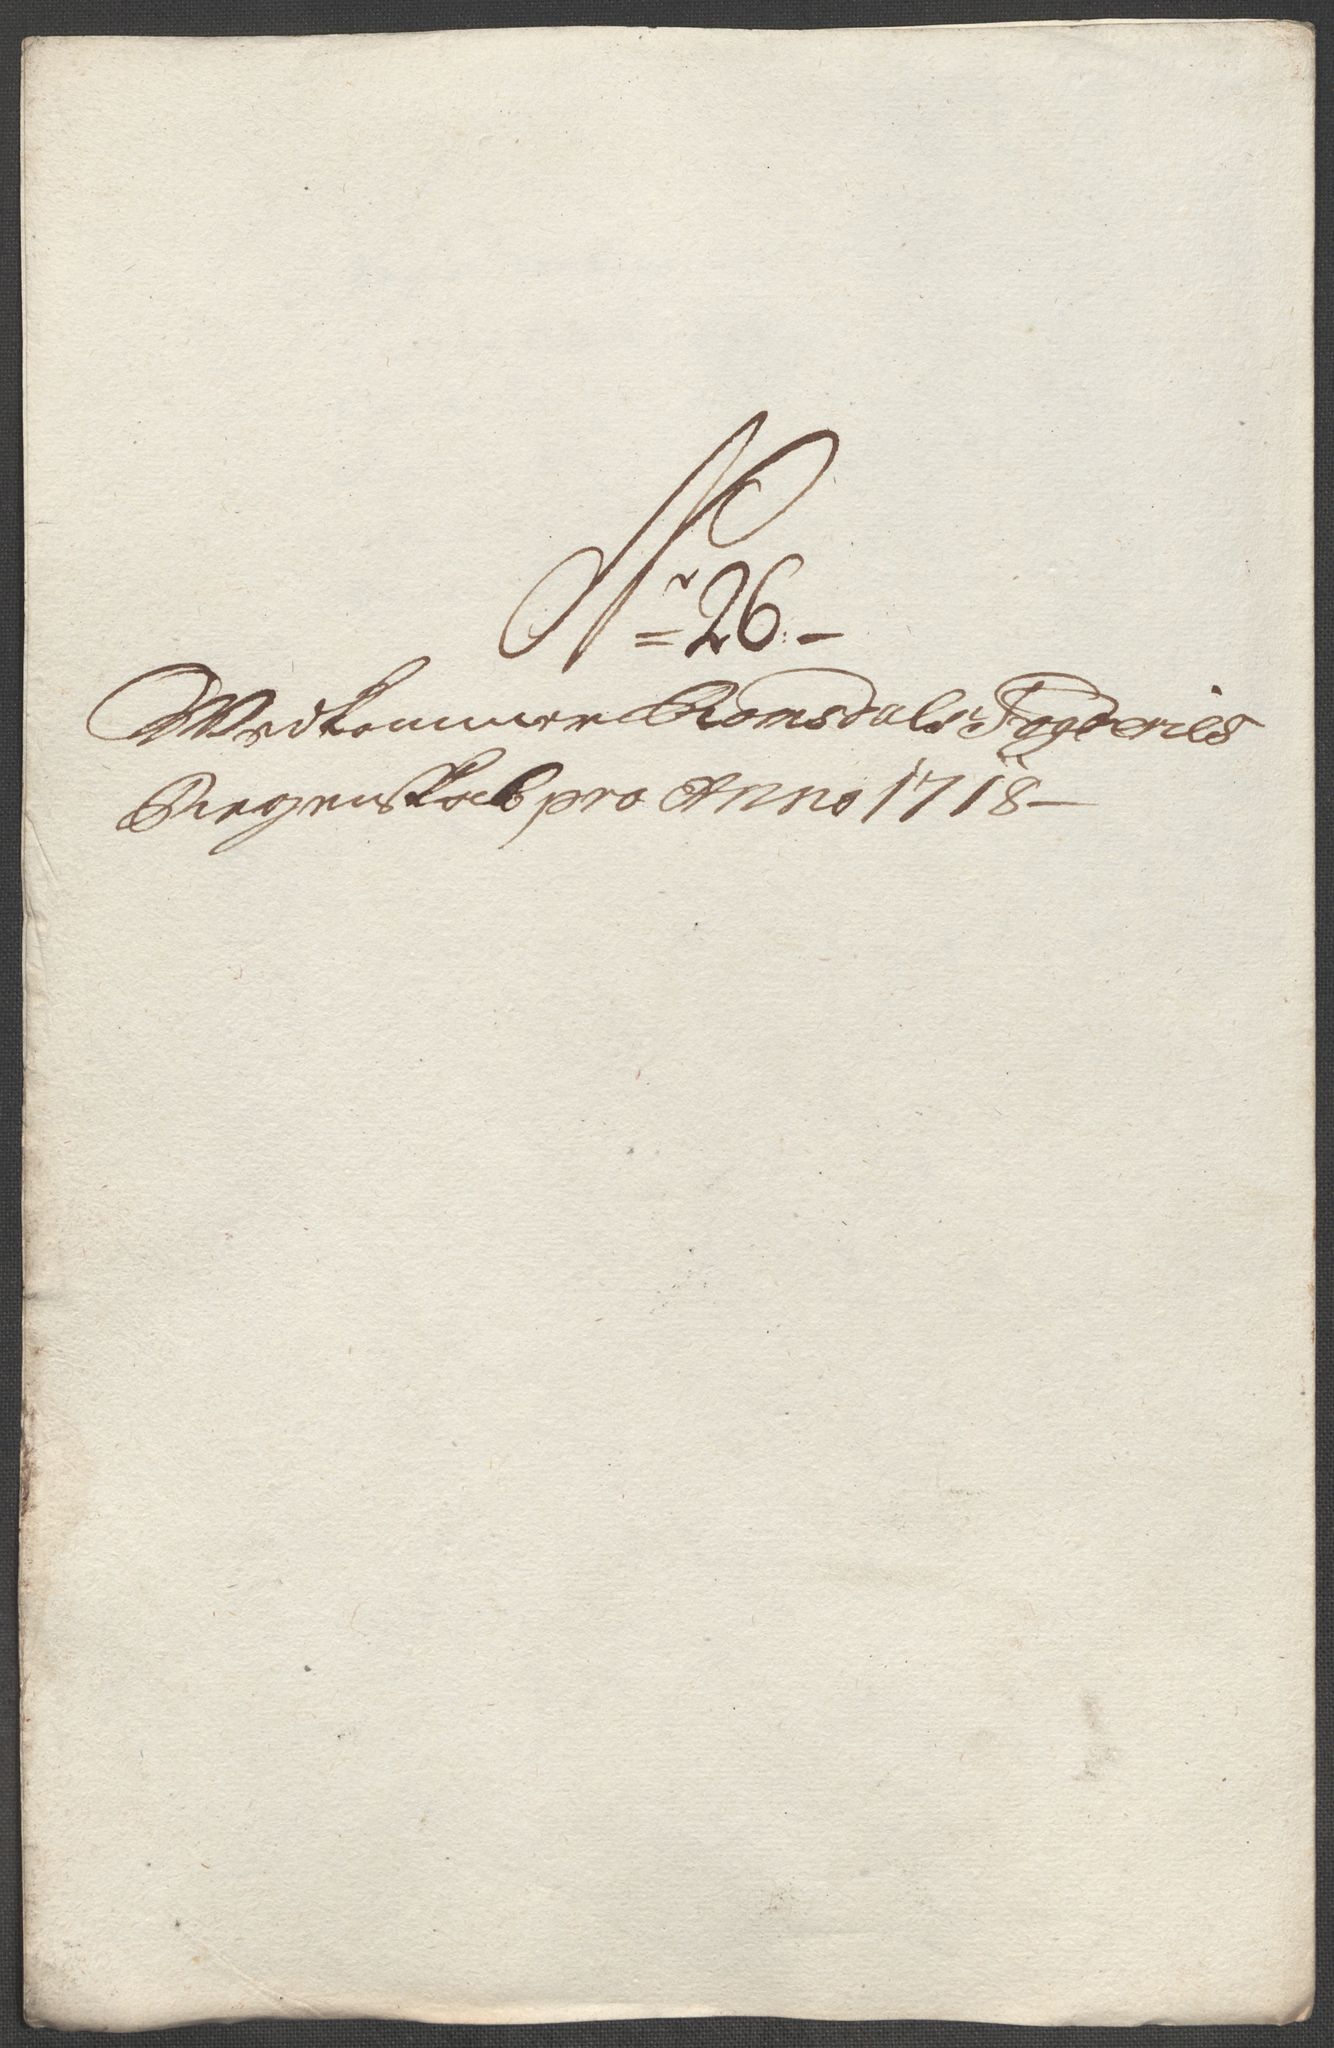 Nr 26. -
Wedkommer Romsdals Fogderies
Regenskab pro Anno 1718 -